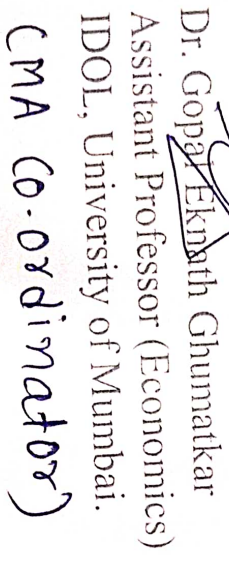 Dr. Gopal Eknath Ghumatkar
Assistant Professor (Economics)
IDOL, University of Mumbai.
(MA Co-ordinator)